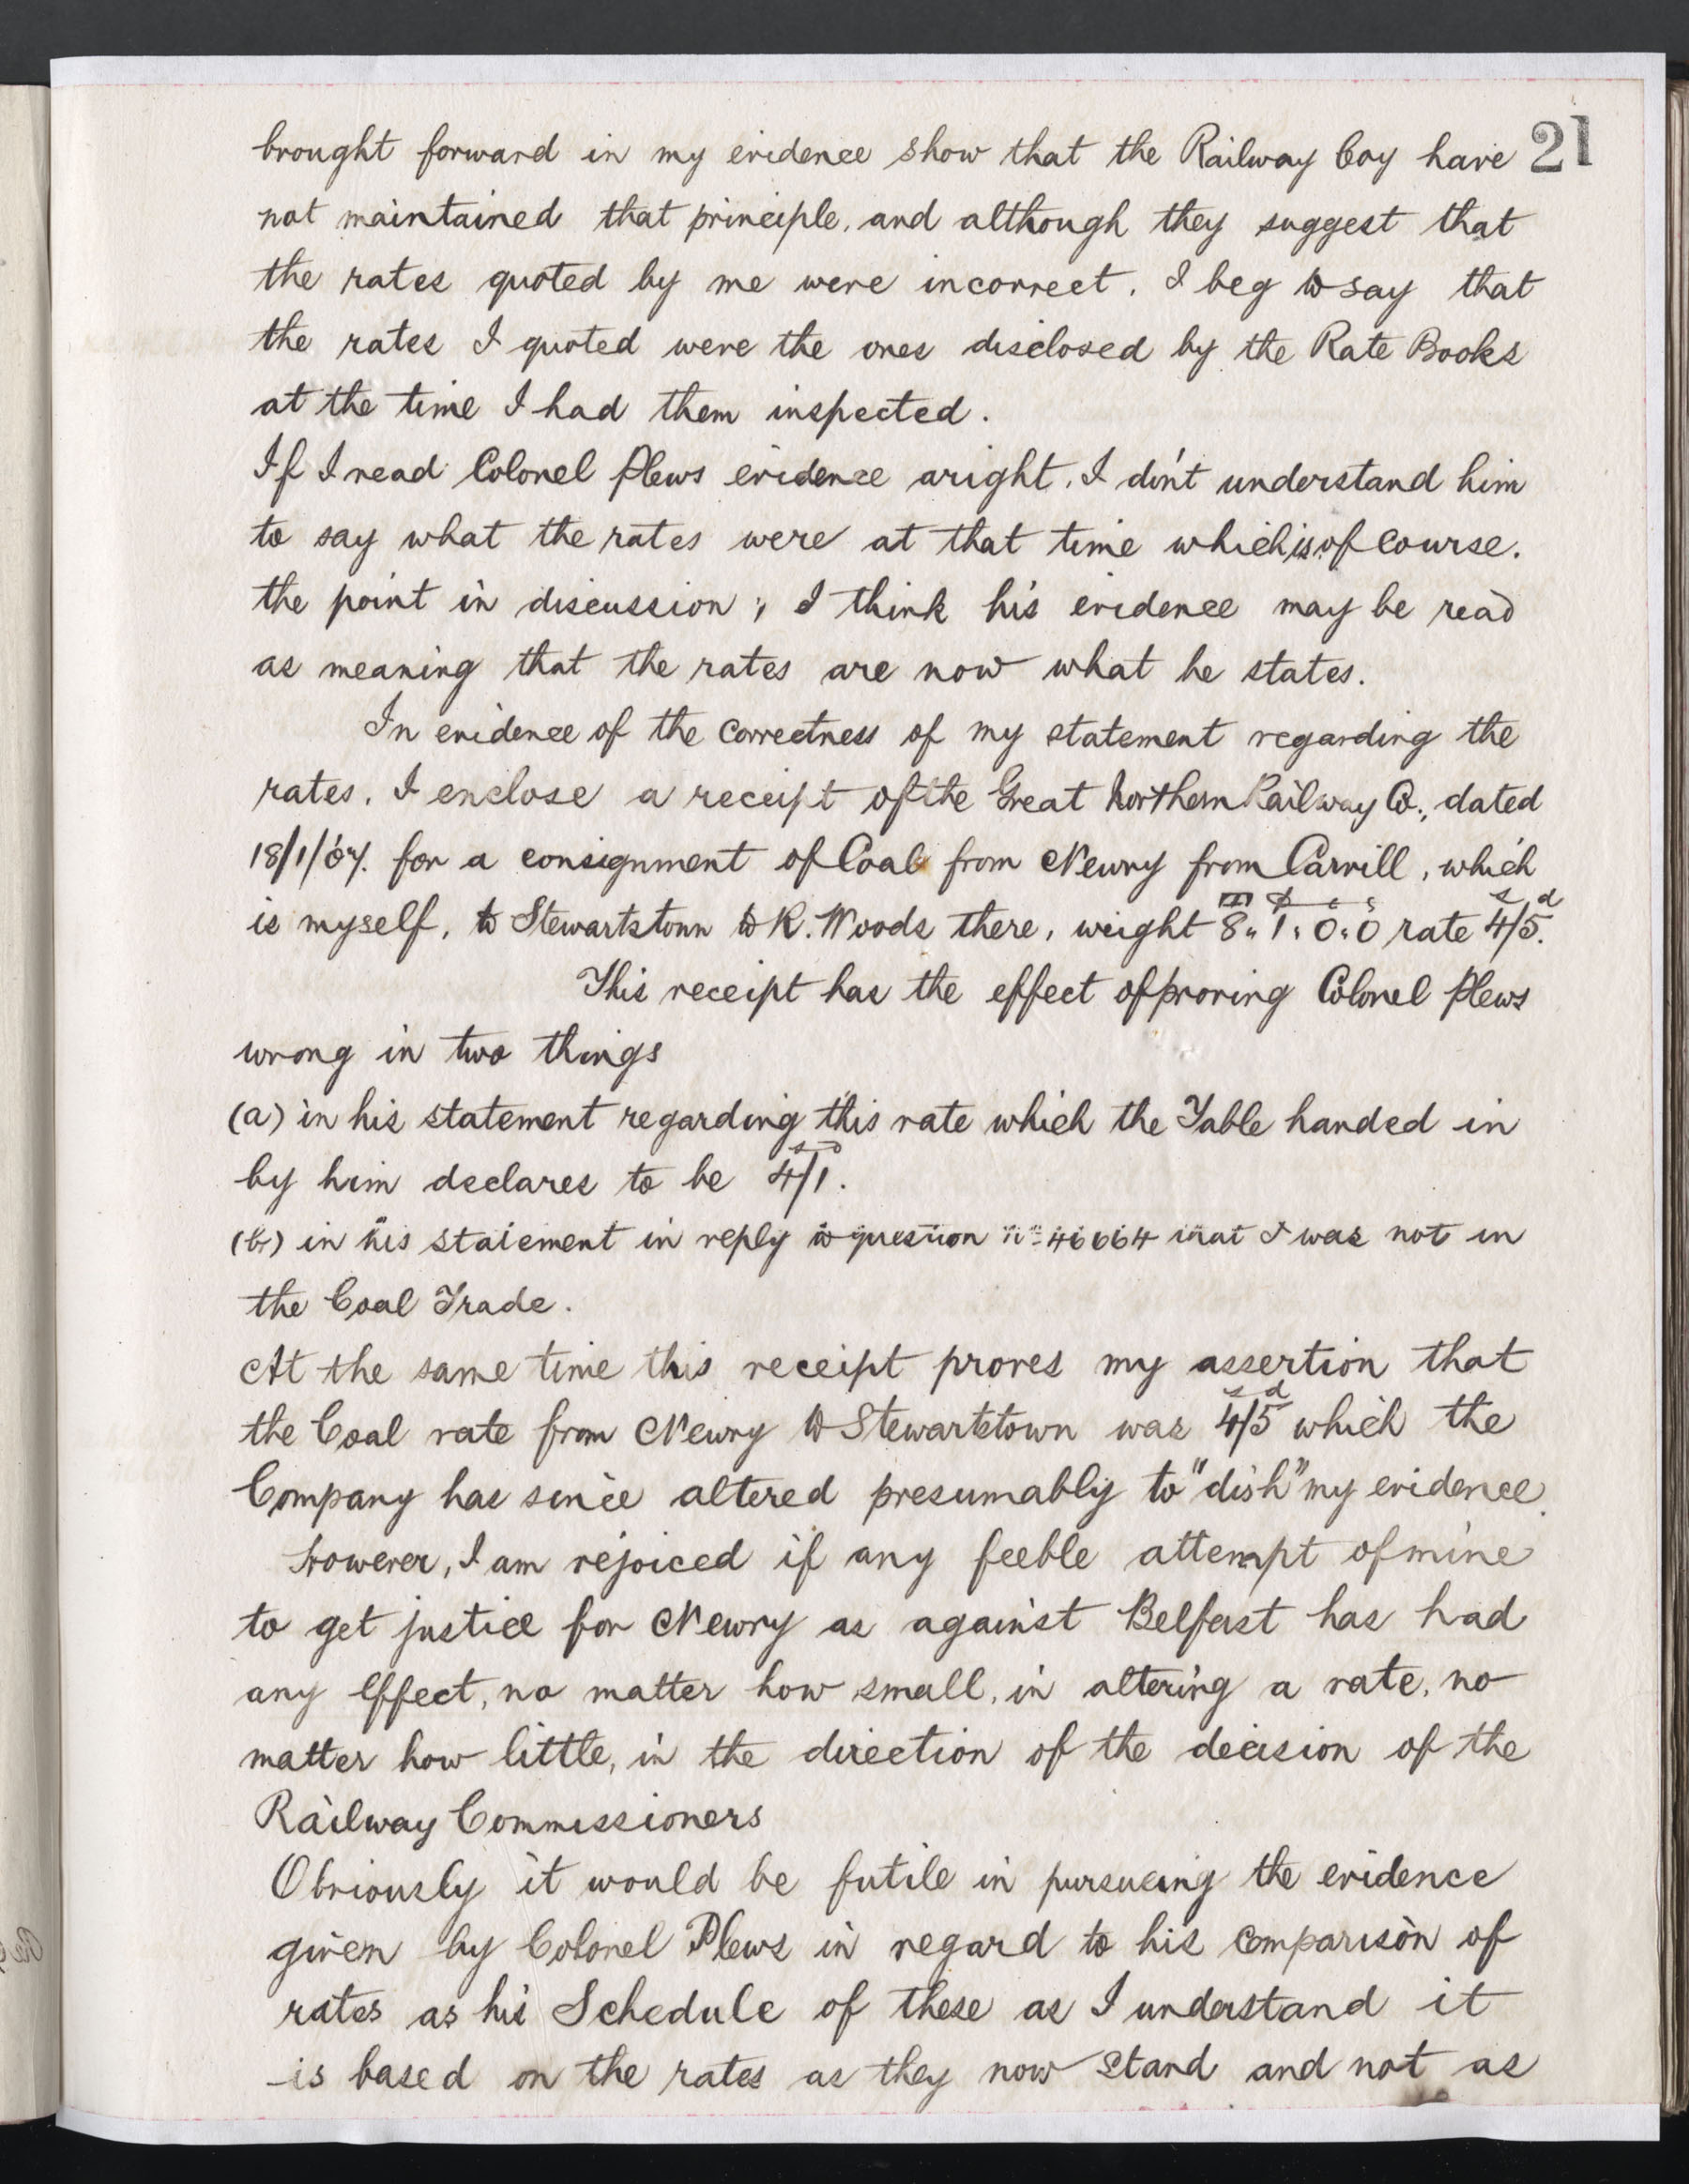 21
brought forward in my evidence show that the Railway Coy have
not maintained that principle, and although they suggest that
the rates quoted by me were incorrect. I beg to say that
the rates I quoted were the ones disclosed by the Rate Books
at the time I had them inspected.
If I read Colonel Plews evidence aright, I don't understand him
to say what the rates were at that time which is of course.
the point in discussion; I think his evidence may be read
as meaning that the rates are now what he states.
In evidence of the correctness of my statement regarding the
rates. I enclose a receipt of the Great Northern Railway Co., dated
18/1/07. for a consignment of Coal from Newry from Carvill, which
is myself, to Stewartstown to R. Woods there, weight 8" 1" 0" 0 rate 4/5.
This receipt has the effect of proving Colonel Plews
wrong in two things
(a) in his statement regarding this rate which the Table handed in
by him declares to be 4/1.
(b) in his statement in reply to question No 46664 that I was not in
the Coal Trade.
At the same time this receipt proves my assertion that
the Coal rate from Newry to Stewartstown was 4/5 which the
Company has since altered presumably to "dish" my evidence.
However, I am rejoiced if any feeble attempt of mine
to get justice for Newry as against Belfast has had
any effect, no matter how small, in altering a rate, no
matter how little, in the direction of the decision of the
Railway Commissioners
Obviously it would be futile in pursueing the evidence
given by Colonel Plews in regard to his comparison of
rates as his Schedule of these as I understand it
is based on the rates as they now stand and not as